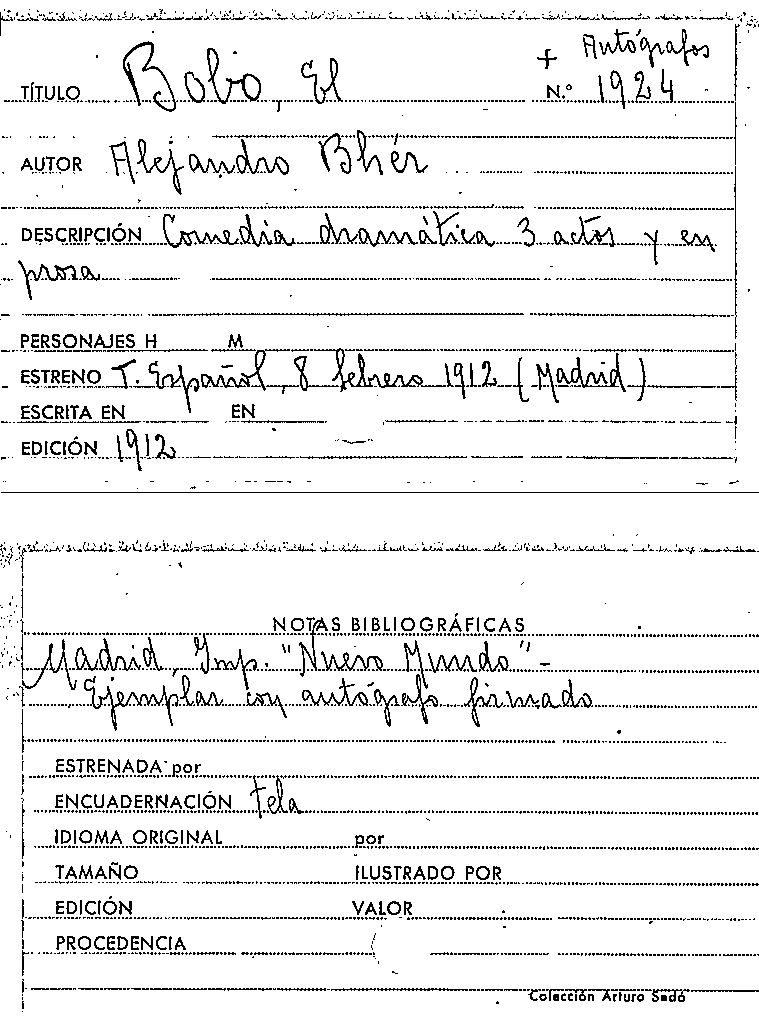 + Autógrafos
TÍTULO Bobo, El N.º 1924
AUTOR Alejandro Bhér
DESCRIPCIÓN Comedia dramática 3 actos y en
prosa
PERSONAJES H M
ESTRENO T. Español, 8 febrero 1912 (Madrid)
ESCRITA EN EN
EDICIÓN 1912
NOTAS BIBLIOGRÁFICAS
Madrid, Imp. "Nuevo Mundo" -
Ejemplar con autógrafo firmado
ESTRENADA por
ENCUADERNACIÓN tela
IDIOMA ORIGINAL por
TAMAÑO ILUSTRADO POR
EDICIÓN VALOR
PROCEDENCIA
Colección Arturo Sedó